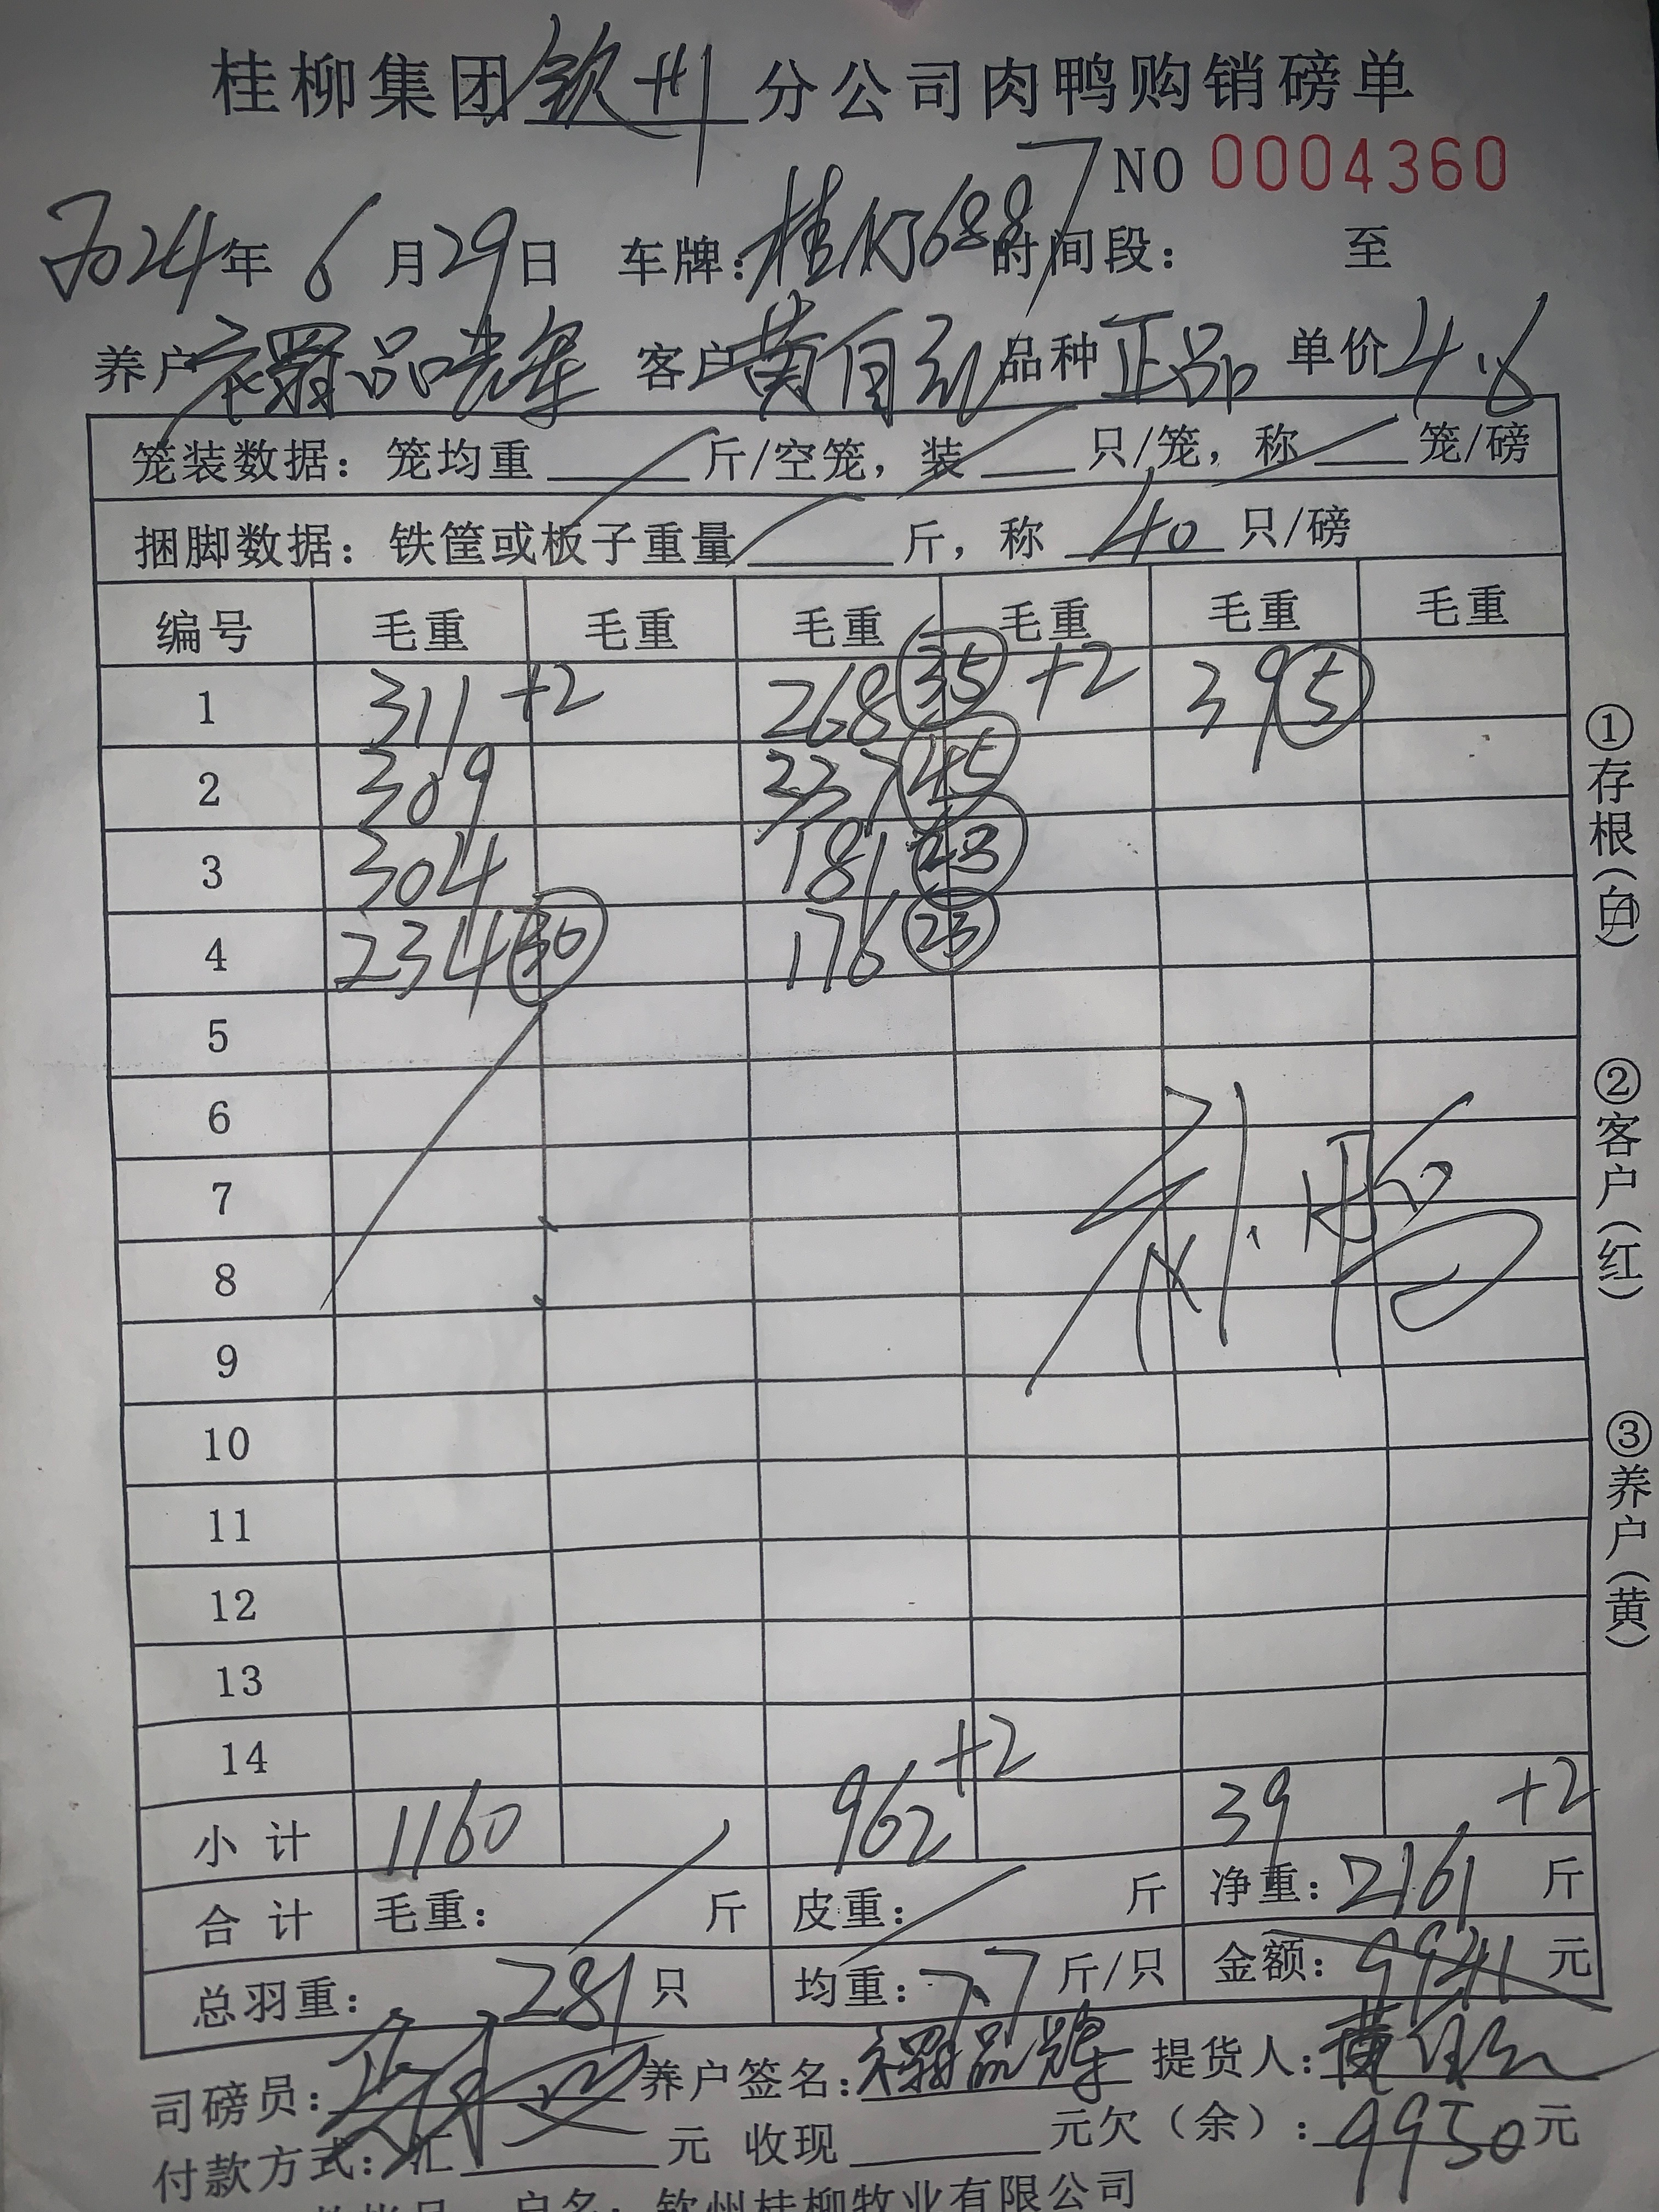 桂柳集团钦州分公司肉鸭购销磅单
NO 0004360
2024年6月29日 车牌:桂 36887 时间段: 至
养户 品 客户 黄自 品种 正品 单价 4.6
笼装数据: 笼均重 斤/空笼, 装 只/笼, 称 笼/磅
捆脚数据: 铁筐或板子重量 斤, 称 40 只/磅
编号 毛重 毛重 毛重 毛重 毛重 毛重
1 311 +2 268 35 +2 39 5
2 309 337 45
3 304 181 23
4 234 30 176 23
5
6
7
8
9
10
11
12
13
14
小计 1160 962 +2 39 +2
合计 毛重: 斤 皮重: 斤 净重: 2161 斤
总羽重: 281 只 均重: 7.7 斤/只 金额: 9941 元
司磅员: 养户签名: 品 提货人: 黄自
付款方式: 汇 元 收现 元欠(余): 9950元
户名: 钦州桂柳牧业有限公司
①存根(白)
②客户(红)
③养户(黄)